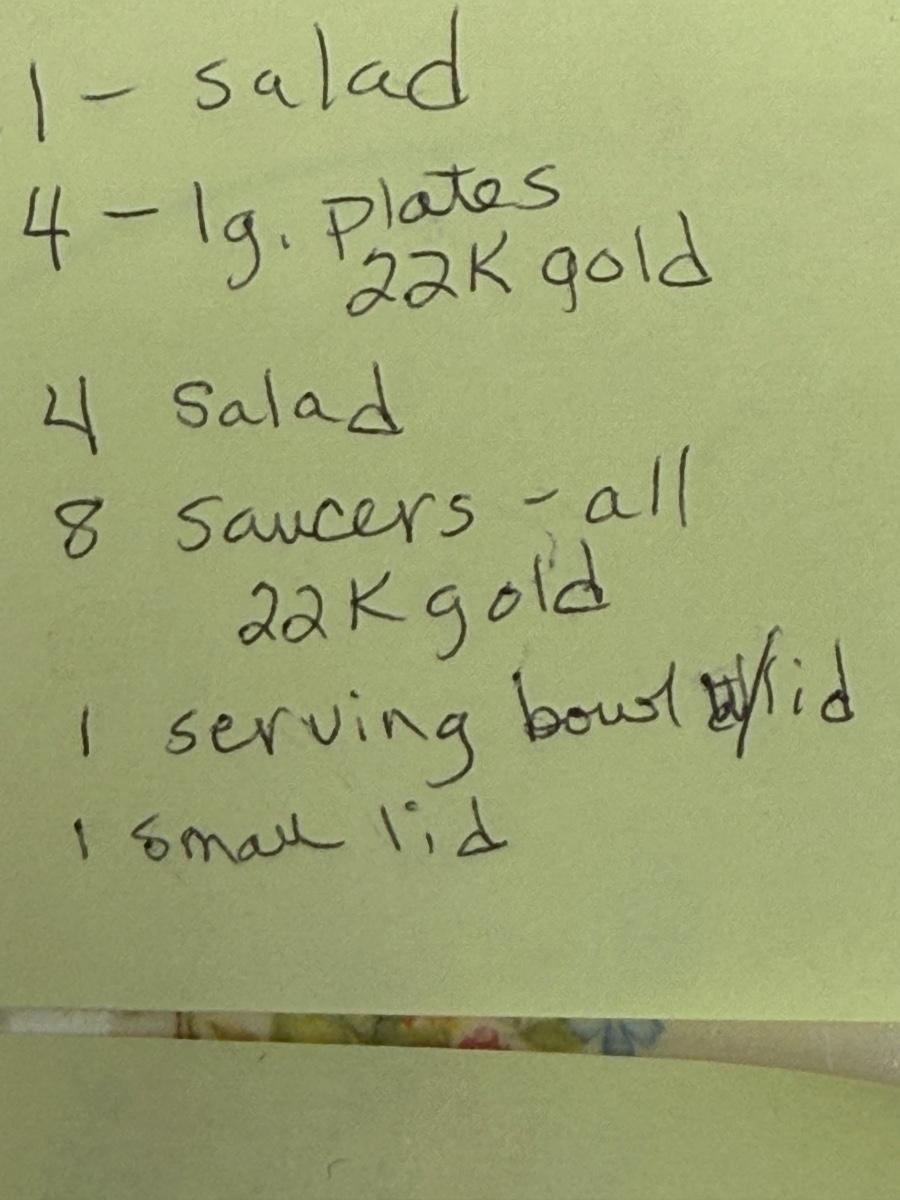 1 - salad
4 - lg. plates
22K gold
4 salad
8 saucers - all
22K gold
1 serving bowl w/lid
1 small lid